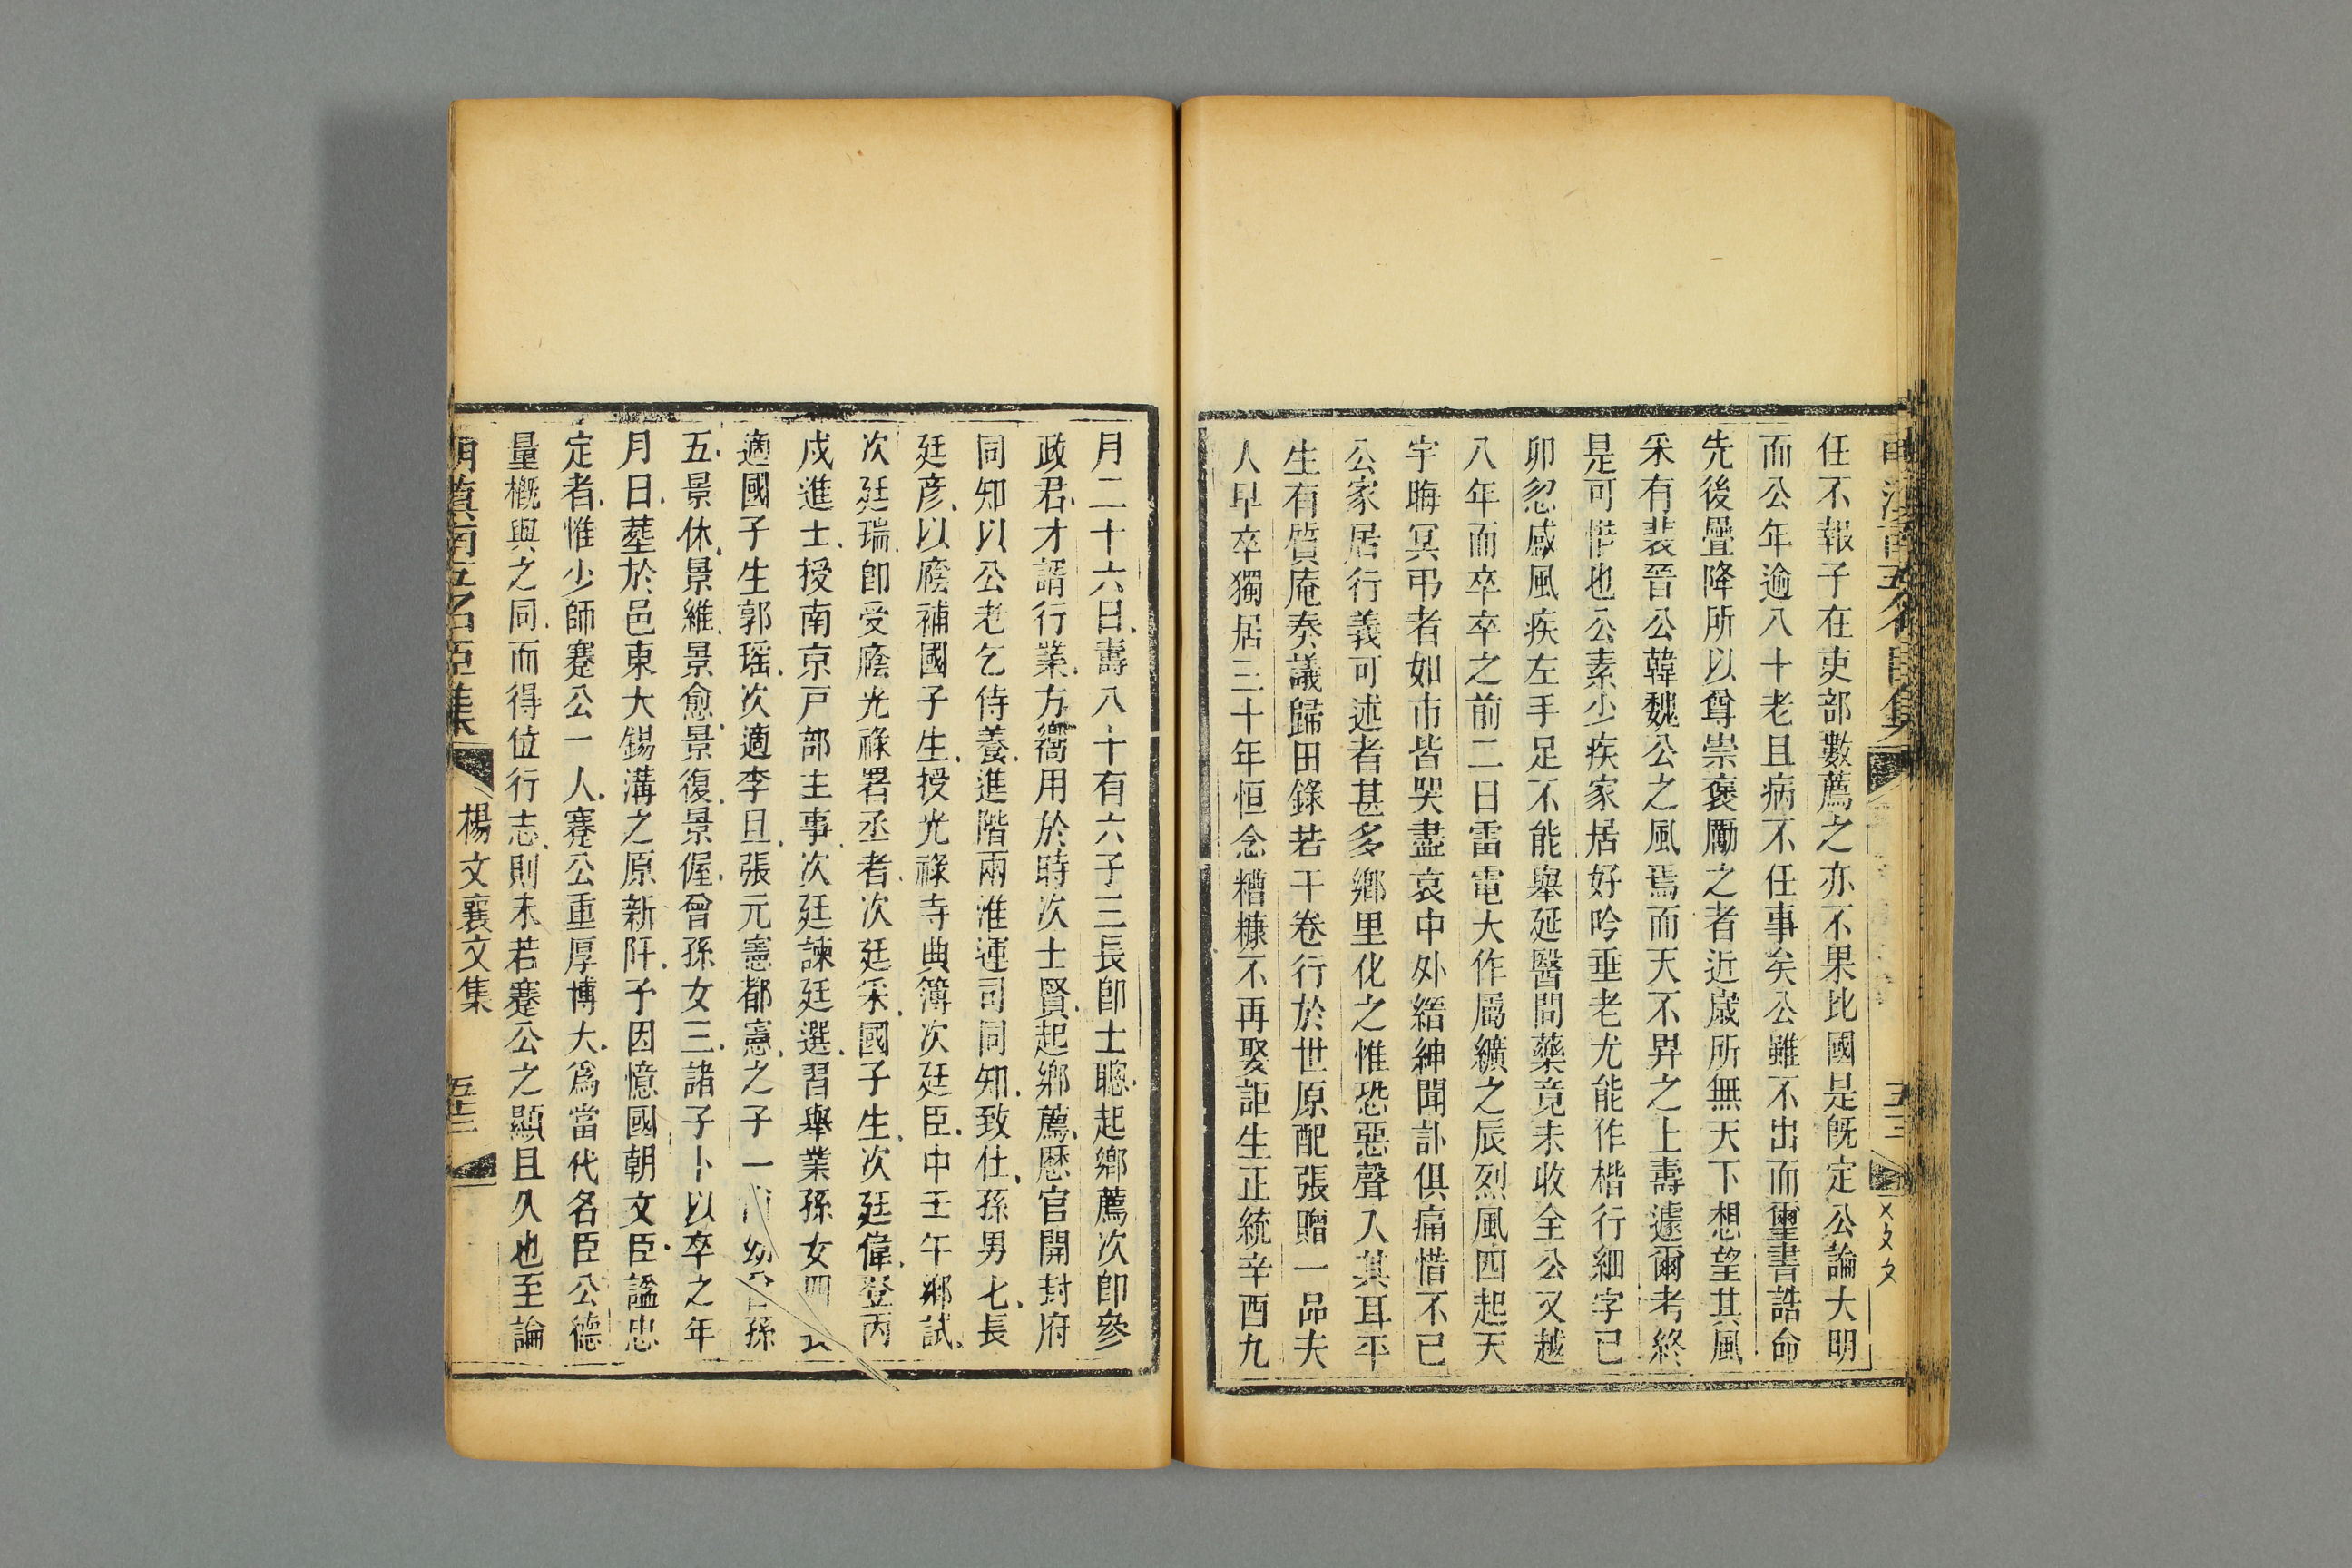 任不報子在吏部數薦之亦不果比國是旣定公論大明
而公年逾八十老且病不任事矣公雖不出而璽書誥命
先後疊降所以尊崇褒勵之者近歲所無天下想望其風
采有裴晉公韓魏公之風焉而天不畀之上壽遽爾考終
是可惜也公素少疾家居好吟垂老尤能作楷行細字己
卯忽感風疾左手足不能舉延醫問藥竟未收全公又越
八年而卒卒之前二日雷電大作屬纊之辰烈風四起天
宇晦冥弔者如市皆哭盡哀中外縉紳聞訃俱痛惜不已
公家居行義可述者甚多鄉里化之惟恐惡聲入其耳平
生有質庵奏議歸田錄若干卷行於世原配張贈一品夫
人早卒獨居三十年恒念糟糠不再娶詎生正統辛酉九
月二十六日壽八十有六子三長卽士聰起鄉薦次卽參
政君才諝行業方嚮用於時次士賢起鄉薦歷官開封府
同知以公老乞侍養進階兩淮運司同知致仕孫男七長
廷彥以廕補國子生授光祿寺典簿次廷臣中壬午鄉試
次廷瑞卽受廕光祿署丞者次廷采國子生次廷偉登丙
戌進士授南京戶部主事次廷諫廷選習舉業孫女四
適國子生郭瑶次適李旦張元憲都憲之子一幼孫
五景休景維景愈景復景偓曾孫女三諸子卜以卒之年
月日塟於邑東大錫溝之原新阡予因憶國朝文臣謚忠
定者惟少師蹇公一人蹇公重厚博大爲當代名臣公德
量槪與之同而得位行志則未若蹇公之顯且久也至論
明滇南五名臣集 楊文襄文集 五十三